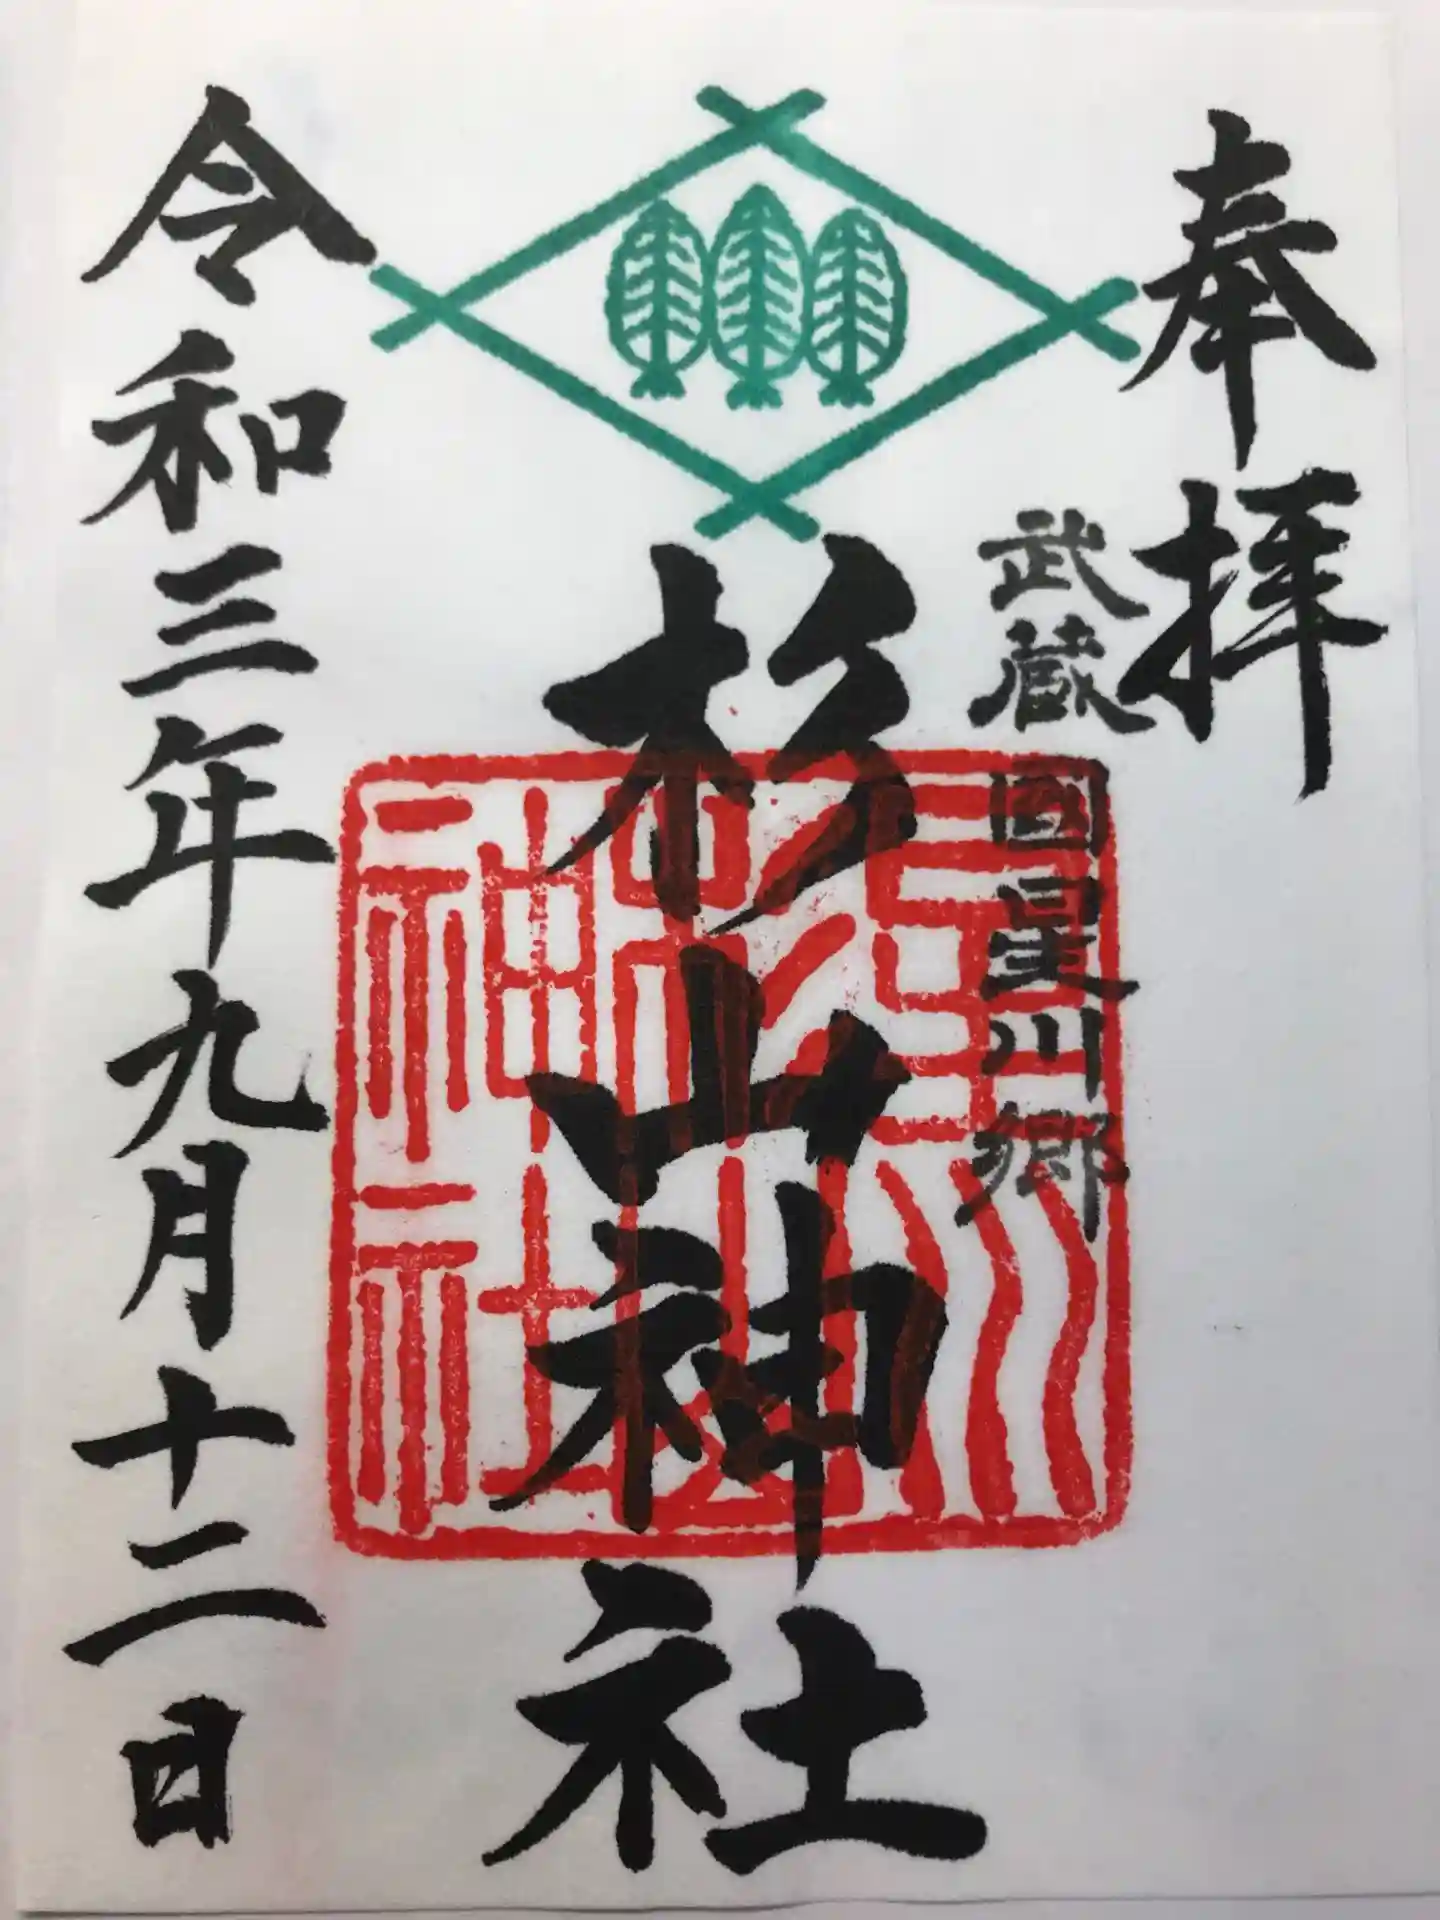 奉拝
武蔵國星川郷
杉山神社
星川杉山神社
令和三年九月十二日